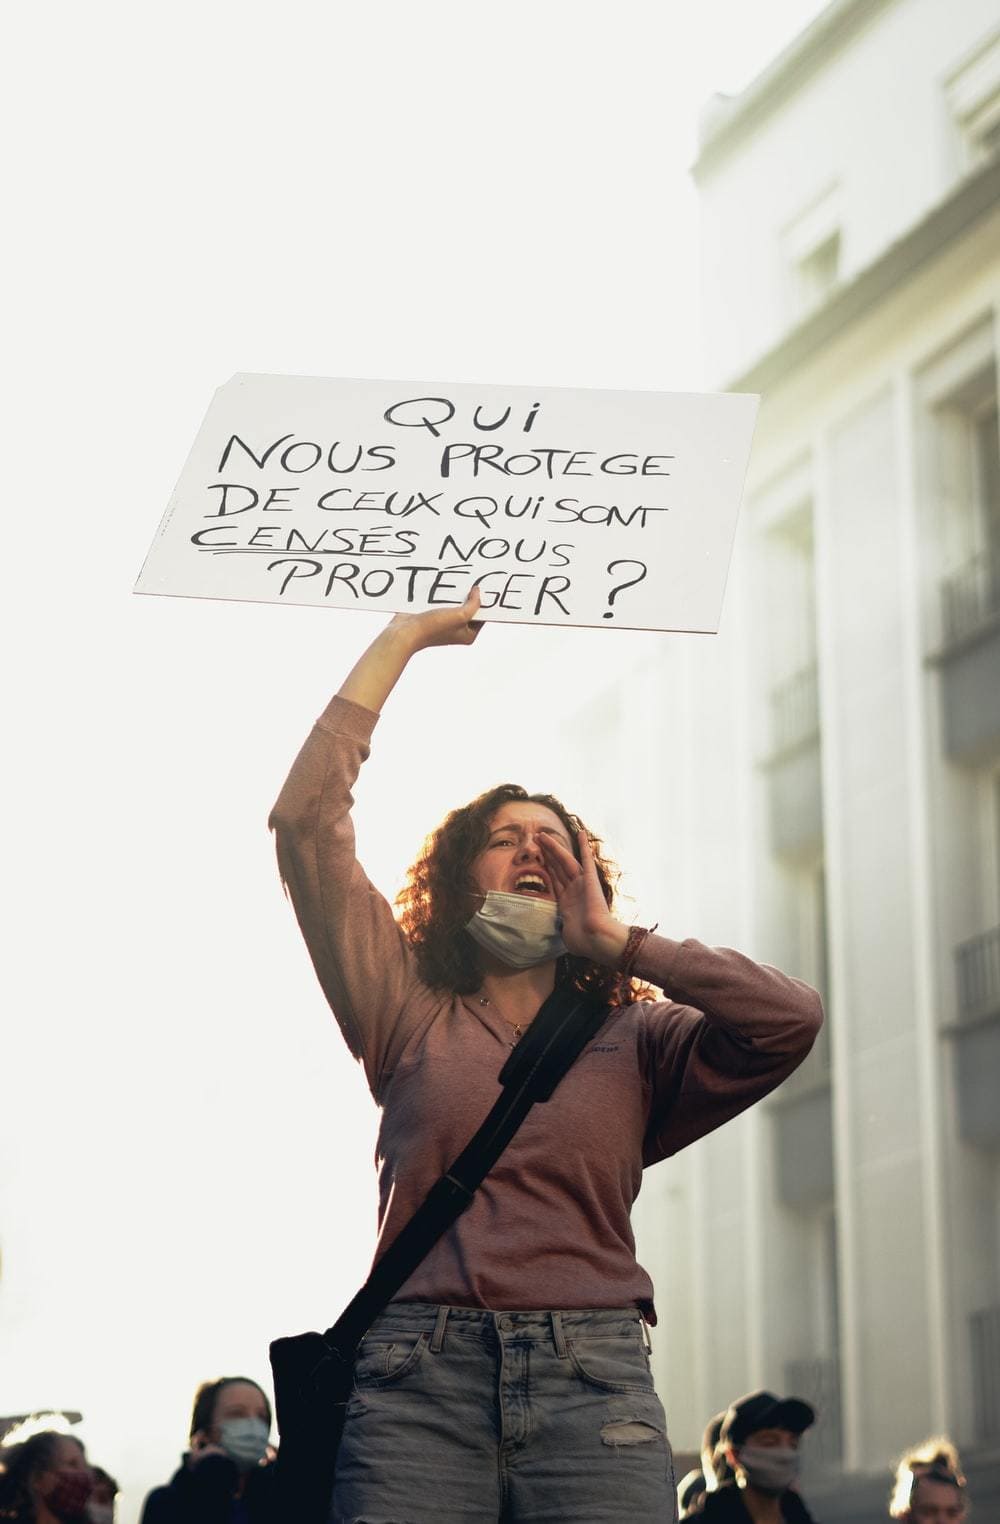 QUi
NOUS PROTEGE
DE CEUX QUi SONT
CENSÉS NOUS
PROTÉGER ?